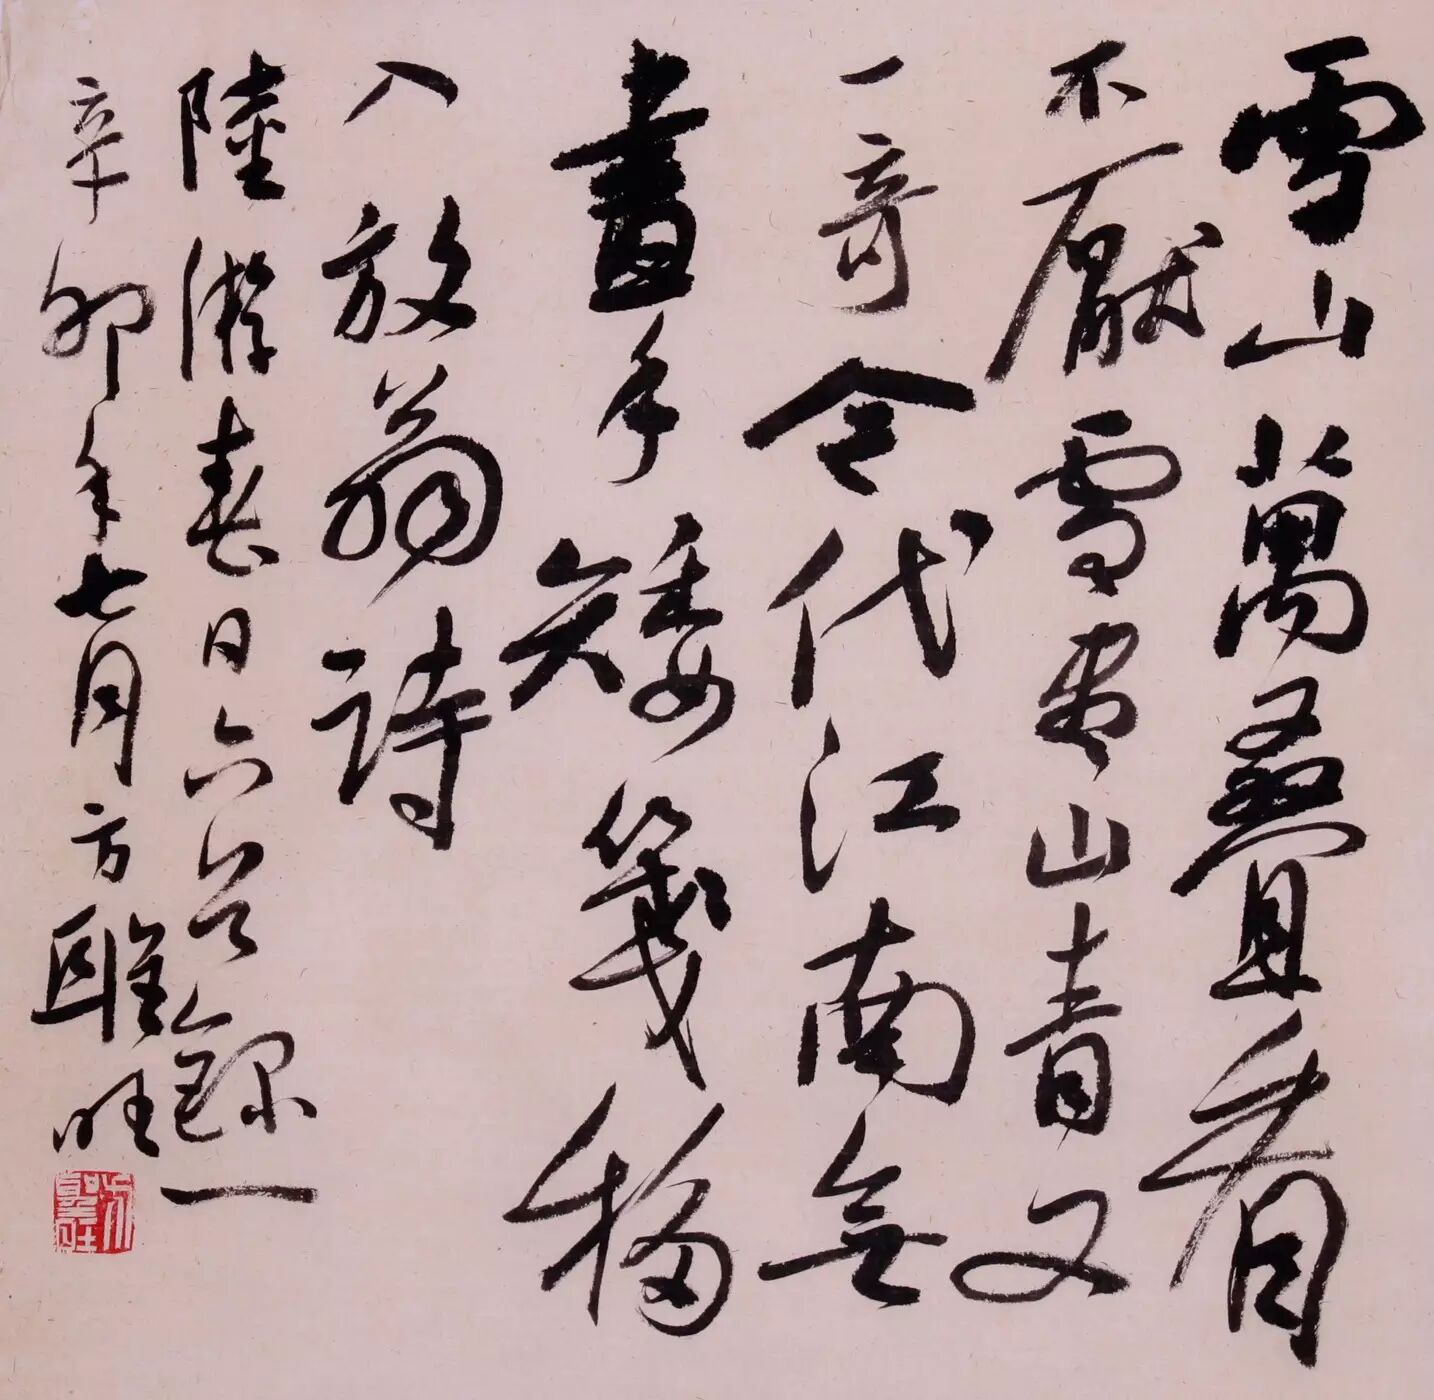 雪山萬叠看
不厭雪盡山青又
一奇今代江南無
畫手矮箋移
入放翁詩
陸游春日六首錄一
辛卯年七月方